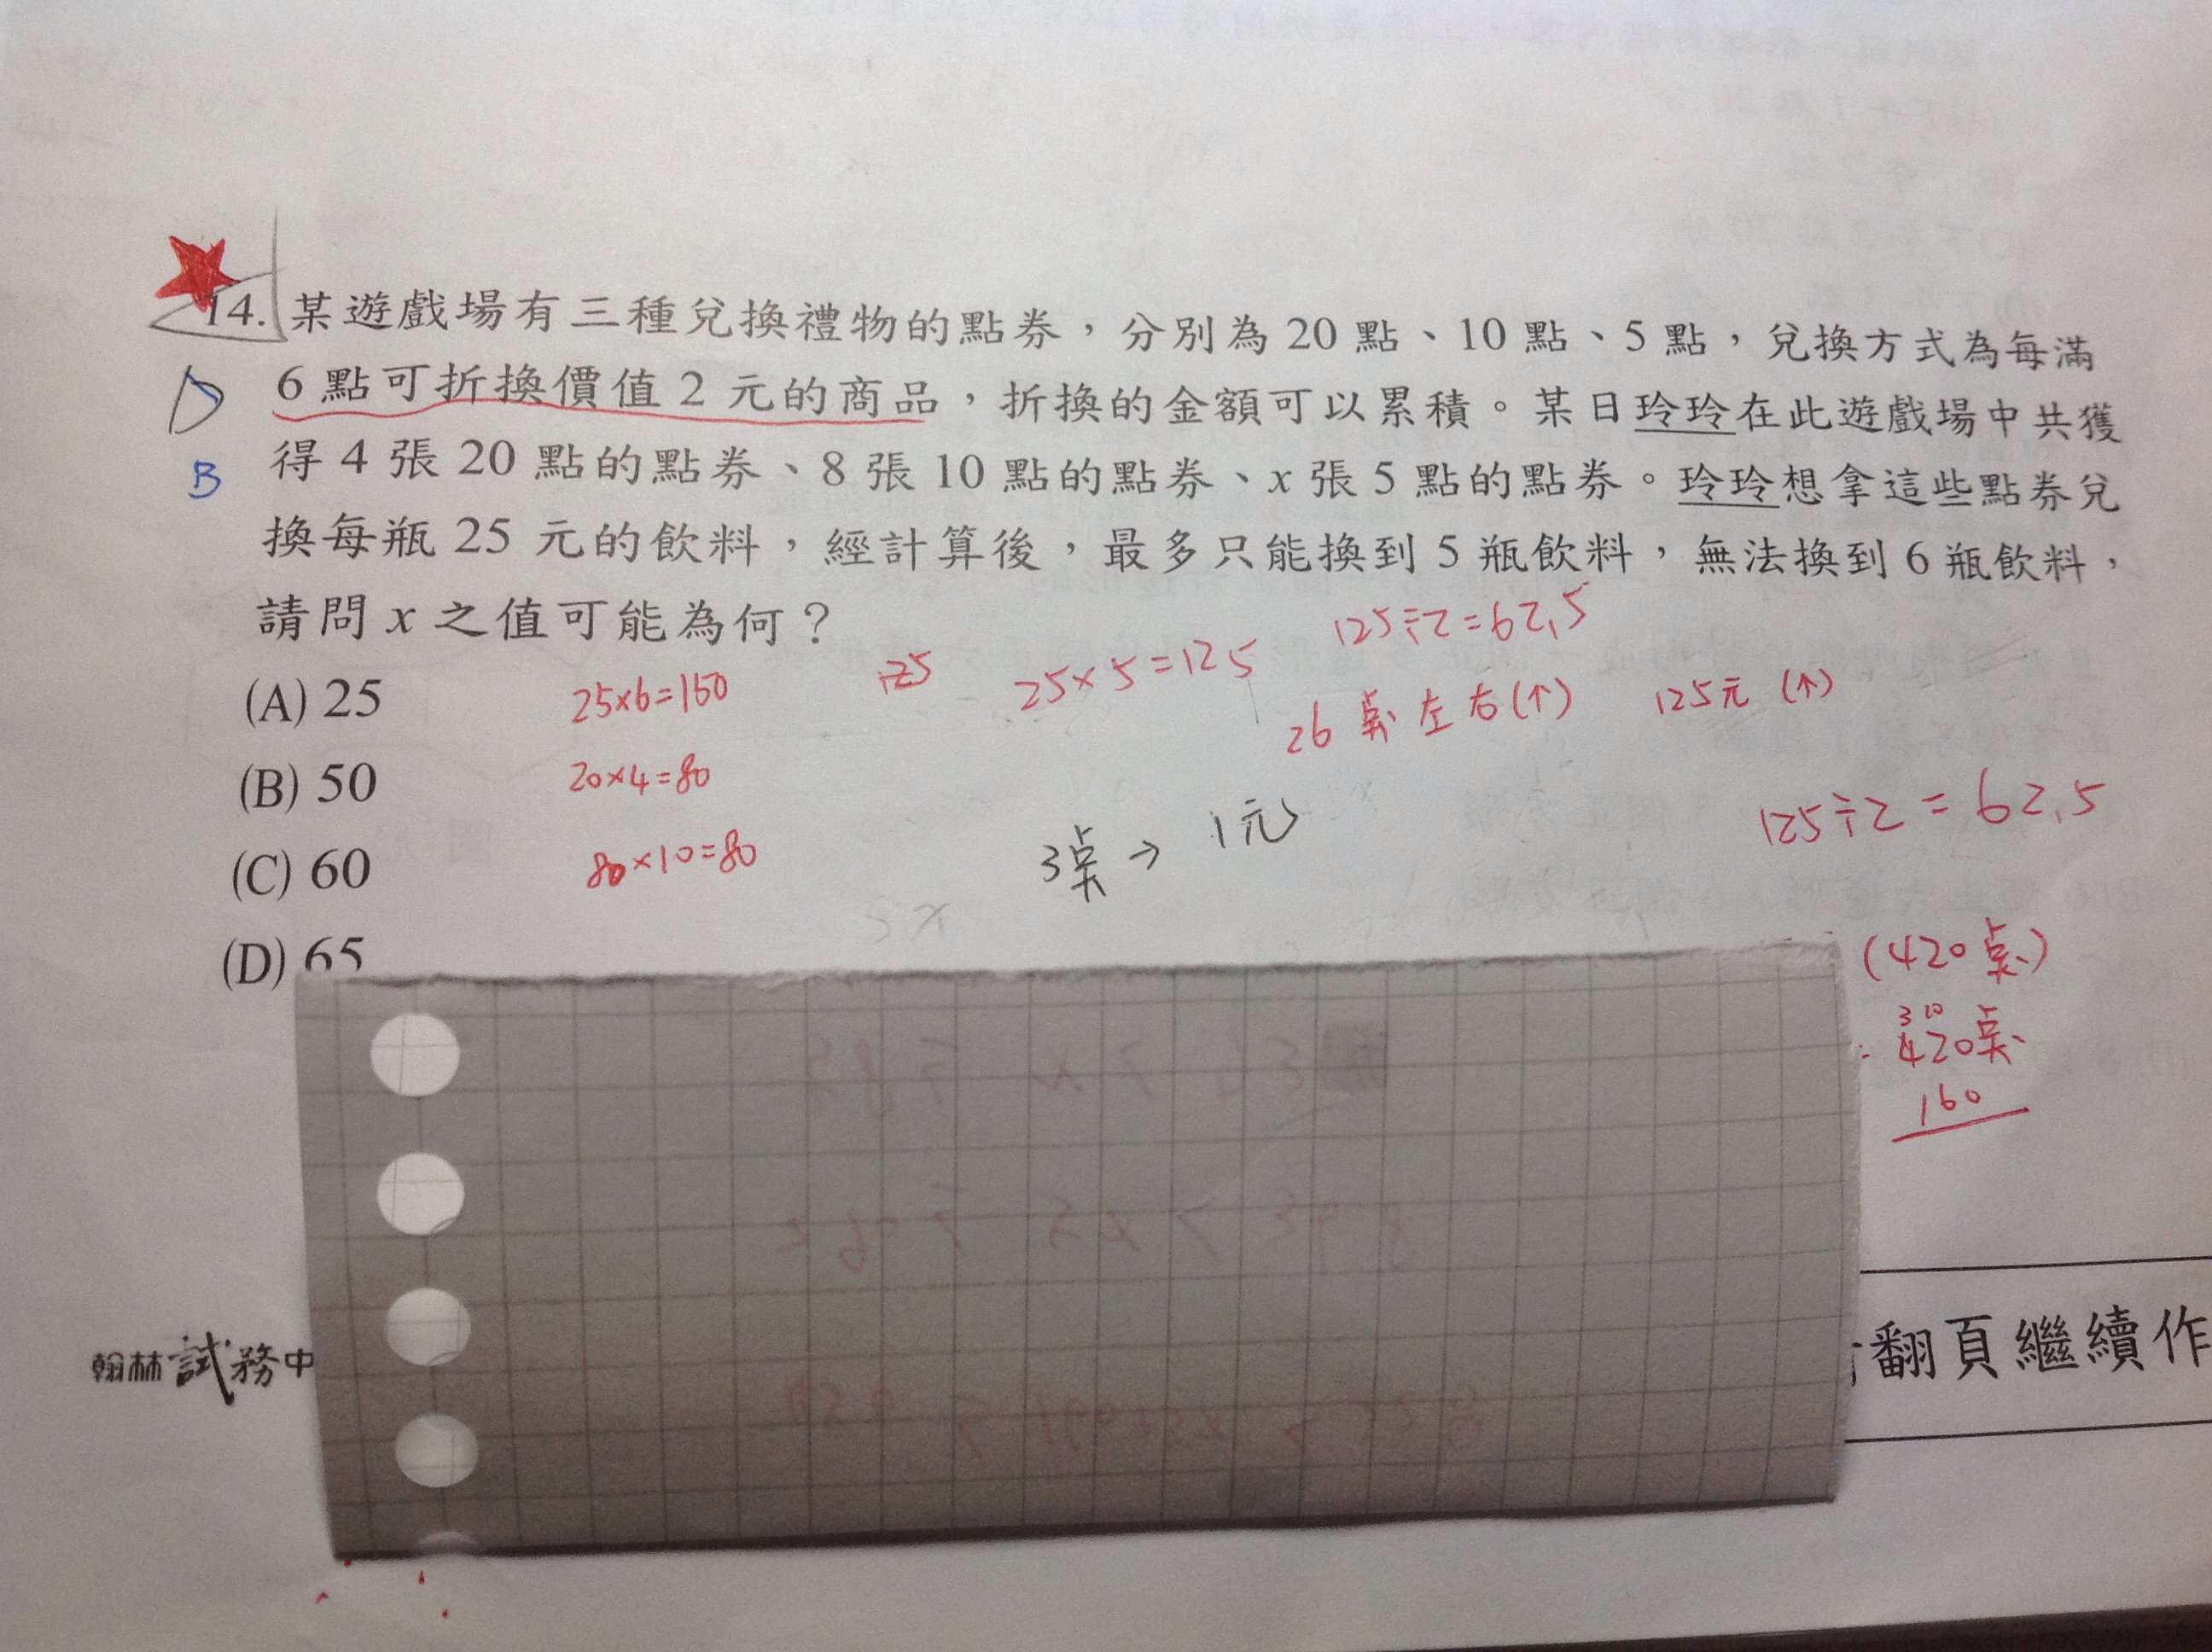 14. 某遊戲場有三種兌換禮物的點券，分別為 20 點、10 點、5 點，兌換方式為每滿
D 6 點可折換價值 2 元的商品，折換的金額可以累積。某日玲玲在此遊戲場中共獲
B 得 4 張 20 點的點券、8 張 10 點的點券、x 張 5 點的點券。玲玲想拿這些點券兌
換每瓶 25 元的飲料，經計算後，最多只能換到 5 瓶飲料，無法換到 6 瓶飲料，
請問 x 之值可能為何？
125÷2=62.5
(A) 25
25×6=150
125
25×5=125
26 点左右(↑)
125元 (↑)
(B) 50
20×4=80
125÷2=62.5
(C) 60
80×10=80
3点→1元
5x
(D) 65
(420点)
3 10
420点
160
翰林試務中
翻頁繼續作